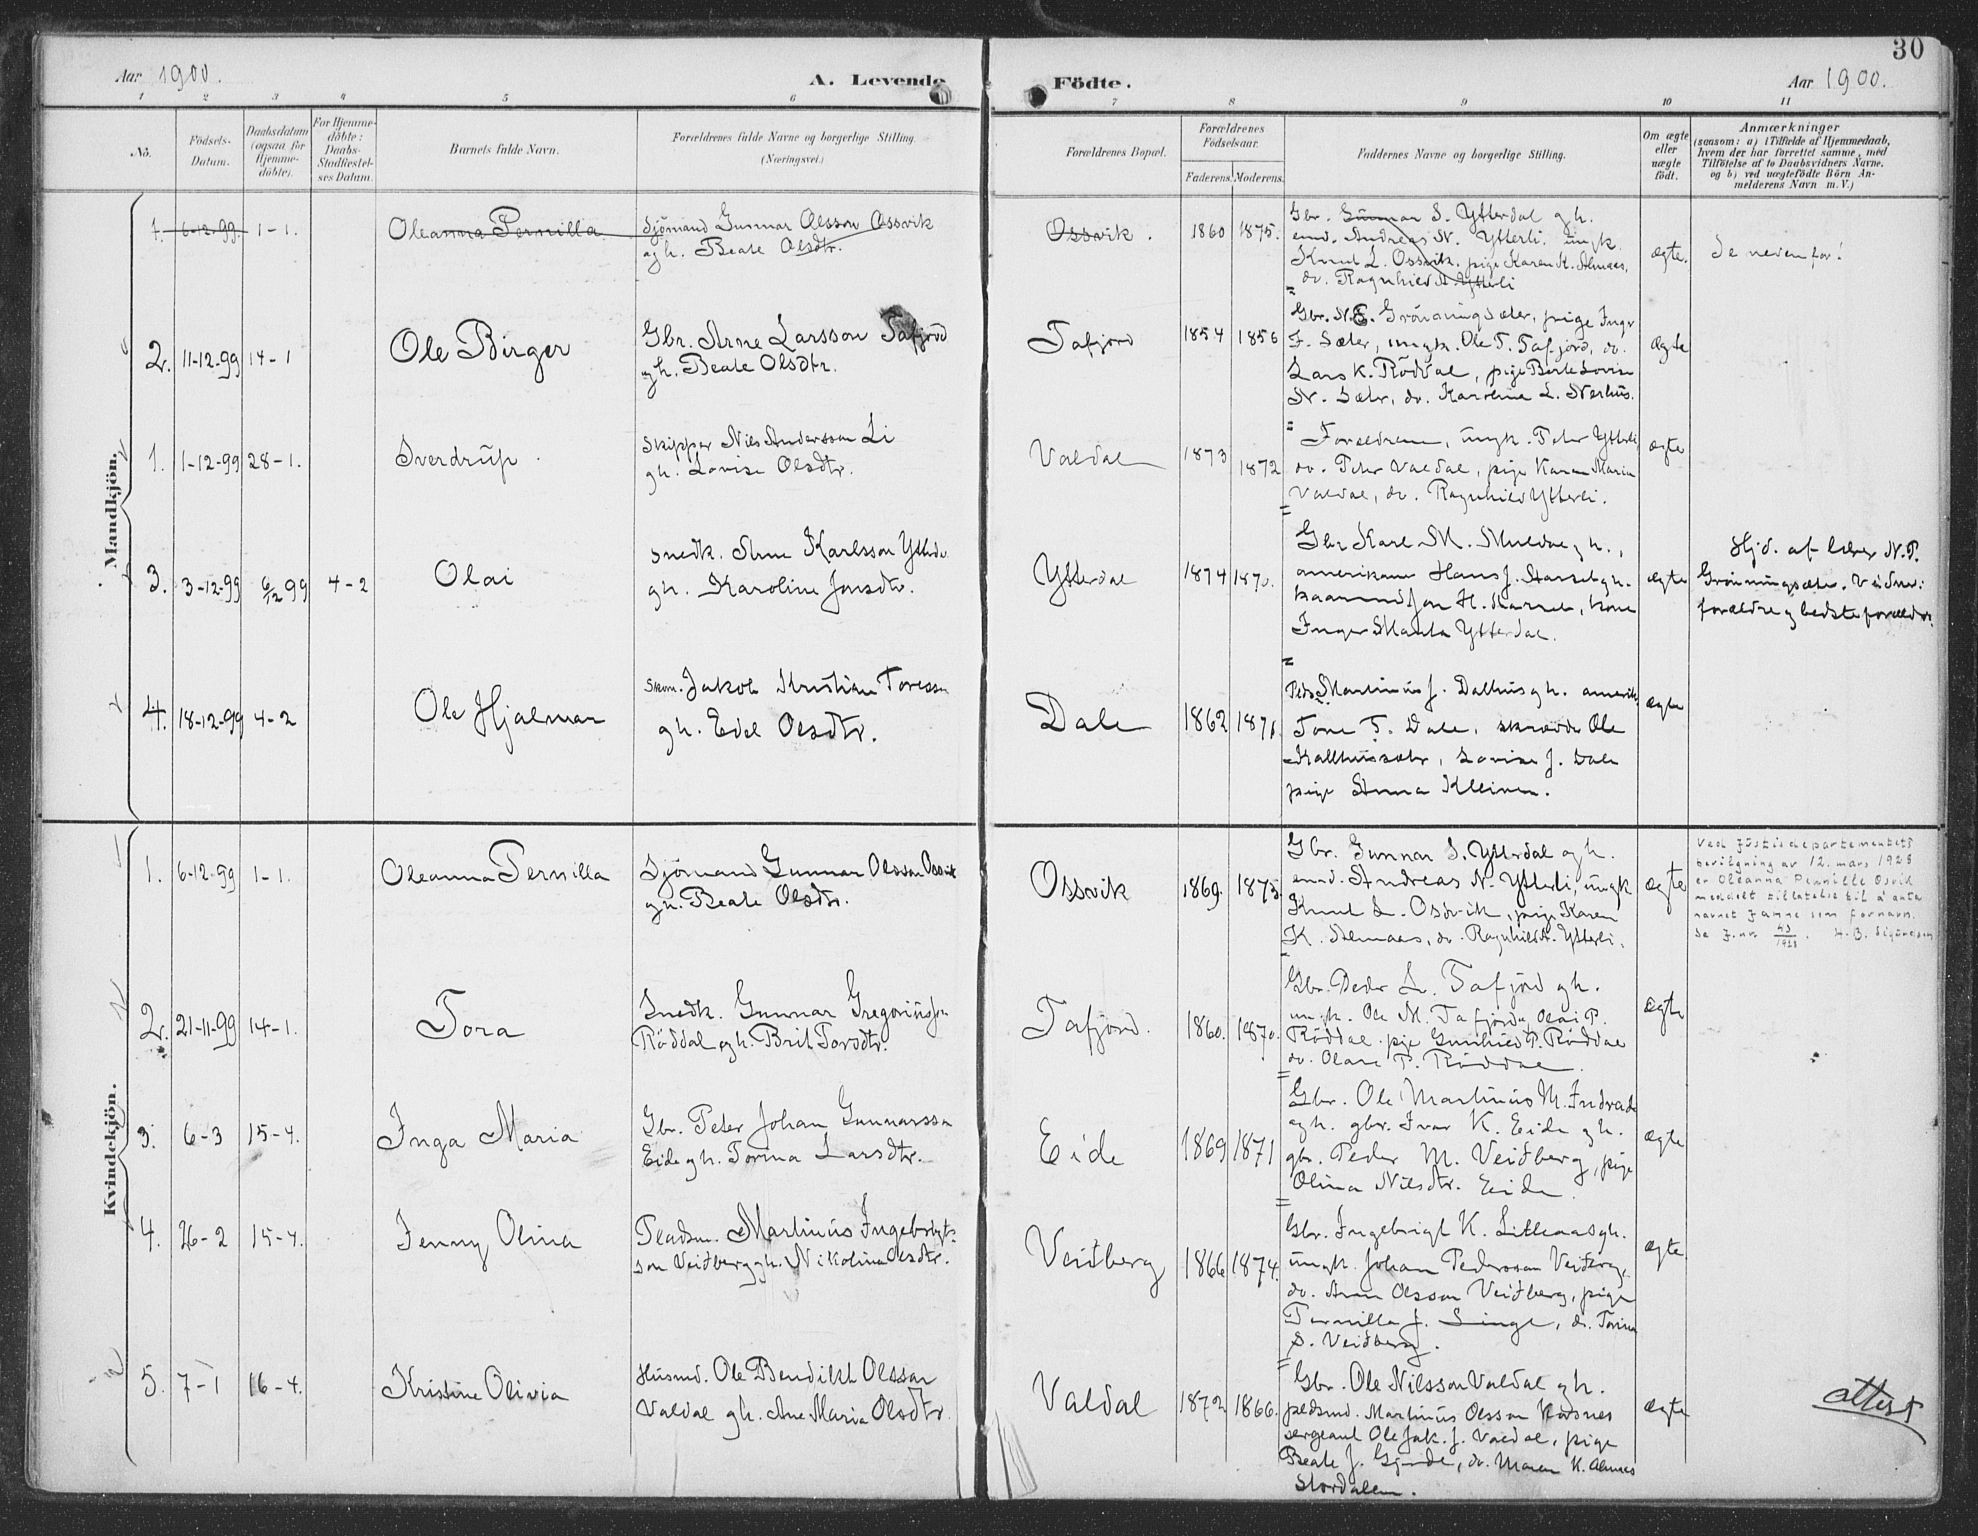 30
Aar 1900.
A. Levende Födte.
Aar 1900.
1 2 3 4 5 6 7 8 9 10 11
No.
Födsels-
Datum.
Daabsdatum
(ogsaa for
Hjemme-
döbte).
For Hjemme-
döbte:
Daabs-
Stadfæstel-
ses Datum.
Barnets fulde Navn.
Forældrenes fulde Navne og borgerlige Stilling.
(Næringsvei.)
Forældrenes Bopæl.
Forældrenes
Födselsaar.
Faderens. Moderens.
Faddernes Navne og borgerlige Stilling.
Om ægte
eller
uægte
födt.
Anmærkninger
(saasom: a) i Tilfælde af Hjemmedaab,
hvem der har forrettet samme, med
Tilföielse af to Daabsvidners Navne,
og b) ved uægtefödte Börn An-
melderens Navn m. V.)
Mandkjön.
1. 6-12-99. 1-1. Oleanna Pernilla
Sjömand Gunnar Olsson Ossvik
og h. Beate Olsdtr.
Ossvik. 1860 1875.
Gbr. Gunnar S. Ytterdal og h.
emd. Andreas N. Ytterli, ungk.
Knut L. Ossvik, pige Karen K. Almaas,
do. Ragnhild A. Ytterli
ægte. Se nedenfor!
2. 11-12-99 14-1 Ole Birger
Gbr. Arne Larsson Tafjord
og h. Beate Olsdtr.
Tafjord 1854 1856
Gbr. N. E. Grönningsæter, pige Inger
F. Sæter, ungk. Ole T. Tafjord, do.
Lars K. Rödval, pige Berte Lovise
N. Sætr, do. Karoline L. Nerhus.
ægte
1. 1-12-99 28-1. Sverdrup.
Skipper Nils Andersson Li
og h. Lovise Olsdtr.
Valdal 1873 1872
Forældrene, ungk. Peter Ytterli,
do. Peter Valdal, pige Karen Maria
Valdal, do. Ragnhild Ytterli.
ægte
3. 3-12-99 6/12 99 4-2 Olai
Snedk. Arne Karlsson Ytterda.
og h. Karoline Jonsdtr.
Ytterdal 1874 1870.
Gbr Karl M. Muldal og h.,
amerikaner Hans J.
Jon H. kone
Inger Marta Ytterdal.
ægte
Hjd. af lærer N. P.
Grönningsæter. Vidner:
forældre og bedsteforældre.
4. 18-12-99 4-2 Ole Hjalmar
Skom. Jakob Kristian Toresson
og h. Edel Olsdtr.
Dale 1862 1871.
Martinus J. Dalhus og h. amerik.
Tone T. Dale, skrædder Ole
Kallhussætr, Lovise J. Dale
pige Anna Kleiven.
ægte
Kvindekjön.
1. 6-12-99 1-1. Oleanna Pernilla
Sjömand Gunnar Olsson Ossvik
og h. Beate Olsdtr.
Ossvik 1869. 1873.
Gbr. Gunnar S. Ytterdal og h.
emd. Andreas N. Ytterli, ungk
Knut L. Osdvik, pige Karen
K. Almaas, do. Ragnhild A. Ytterli.
ægte
Ved Justisdepartementets
bevilgning av 12. mars 1928
er Oleanna Pernille Osvik
meddelt tillatelse til å anta
navnet Janne som fornavn.
Se J.nr. 43/1928.
2. 21-11-99 14-1. Tora
Snedk. Gunnar Gregoriusson
Röddal og h. Brit Torsdtr.
Tafjord. 1860. 1870.
Gbr. Peder L. Tafjord og h.
ungk. Ole M. Tafjord, Olai P.
Röddal. pige Gunhild P. Röddal
do. Olave P. Röddal.
ægte
3. 6-3 15-4. Inga Maria
Gbr. Peter Johan Gunnarsson
Eide og h. Torina Larsdtr.
Eide 1869 1871
Gbr. Ole Martinus M. Indreeide
og h. gbr. Ivar K. Eide og h.
gbr. Peder M. Veidberg, pige
Olina Nilsdtr. Eide.
ægte
4. 26-2 15-4. Jenny Olina
Pladsm. Martinus Ingebrigt-
son Veidberg og h. Nikoline Olsdtr.
Veidberg 1866 1874.
Gbr. Ingebrigt K. Lilleaas og h.
ungk. Johan Pedersson Veidberg,
do. Arne Olsson Veidberg, pige
Pernilla J. Linge, do. Torina
S. Veidberg.
ægte
5. 7-1 16-4. Kristine Olivia
Husmd. Ole Bendikt Olsson
Valdal og h. Ane Maria Olsdtr.
Valdal 1872 1866.
Gbr. Ole Nilsson Valdal og h.
pldsmd. Martinus Olsson Kordnes
sergeant Ole Jak. J. Valdal, pige
Beate J. Gjerde, do. Maren K. Almaas
Stordalen.
ægte
attest